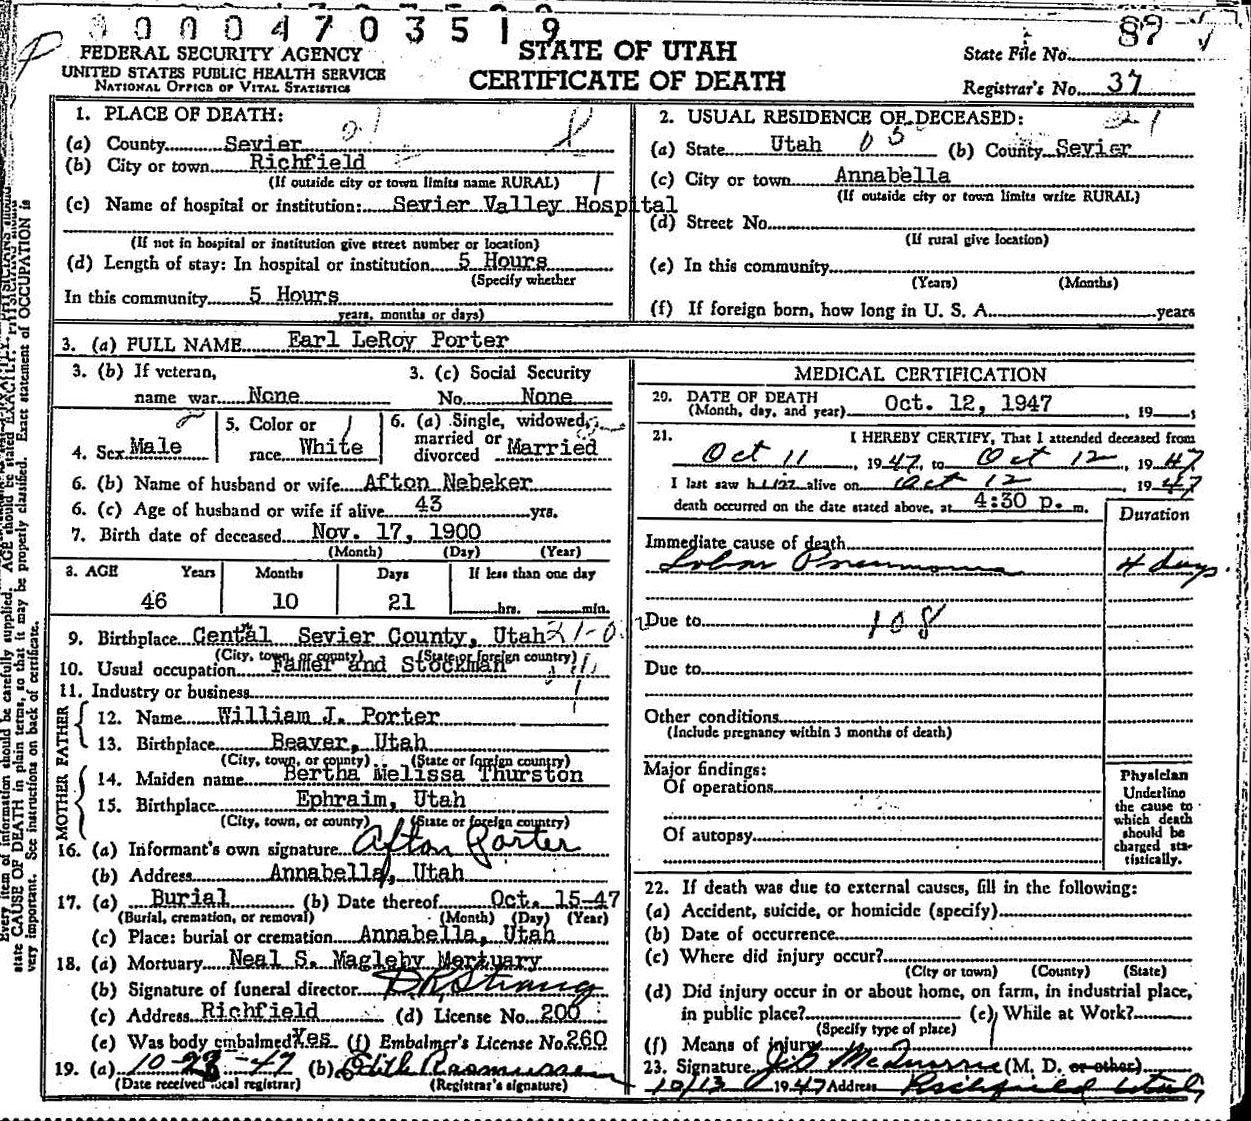 00004703519
87
FEDERAL SECURITY AGENCY
UNITED STATES PUBLIC HEALTH SERVICE
NATIONAL OFFICE OF VITAL STATISTICS
STATE OF UTAH
CERTIFICATE OF DEATH
State File No.
Registrar's No. 37
1. PLACE OF DEATH:
(a) County Sevier
(b) City or town Richfield
(If outside city or town limits name RURAL)
(c) Name of hospital or institution: Sevier Valley Hospital
(If not in hospital or institution give street number or location)
(d) Length of stay: In hospital or institution 5 Hours
(Specify whether
In this community 5 Hours
years, months or days)
2. USUAL RESIDENCE OF DECEASED:
(a) State Utah (b) County Sevier
(c) City or town Annabella
(If outside city or town limits write RURAL)
(d) Street No.
(If rural give location)
(e) In this community
(Years) (Months)
(f) If foreign born, how long in U. S. A. years
3. (a) FULL NAME Earl LeRoy Porter
3. (b) If veteran, 3. (c) Social Security
name war None No. None
4. Sex Male
5. Color or
race White
6. (a) Single, widowed,
married or
divorced Married
6. (b) Name of husband or wife Afton Nebeker
6. (c) Age of husband or wife if alive 43 yrs.
7. Birth date of deceased Nov. 17, 1900
(Month) (Day) (Year)
8. AGE Years Months Days If less than one day
46 10 21 hrs. min.
9. Birthplace Cental Sevier County, Utah
(City, town, or county) (State or foreign country)
10. Usual occupation Famer and Stockman
11. Industry or business
FATHER
12. Name William J. Porter
13. Birthplace Beaver, Utah
(City, town, or county) (State or foreign country)
MOTHER
14. Maiden name Bertha Melissa Thurston
15. Birthplace Ephraim, Utah
(City, town, or county) (State or foreign country)
16. (a) Informant's own signature Afton Porter
(b) Address Annabella, Utah
17. (a) Burial (b) Date thereof Oct. 15-47
(Burial, cremation, or removal) (Month) (Day) (Year)
(c) Place: burial or cremation Annabella, Utah
18. (a) Mortuary Neal S. Magleby Mortuary
(b) Signature of funeral director
(c) Address Richfield (d) License No. 200
(e) Was body embalmed? Yes (f) Embalmer's License No. 260
19. (a) 10-23-47 (b) Edith Rasmussen
(Date received local registrar) (Registrar's signature)
MEDICAL CERTIFICATION
20. DATE OF DEATH
(Month, day, and year) Oct. 12, 1947, 19
21. I HEREBY CERTIFY, That I attended deceased from
Oct 11, 1947, to Oct 12, 1947
I last saw him alive on Oct 12 1947
death occurred on the date stated above, at 4:30 p. m.
Duration
Immediate cause of death
Lobar Pneumonia 4 days
Due to 108
Due to
Other conditions
(Include pregnancy within 3 months of death)
Major findings:
Of operations
Of autopsy
Physician
Underline
the cause to
which death
should be
charged sta-
tistically.
22. If death was due to external causes, fill in the following:
(a) Accident, suicide, or homicide (specify)
(b) Date of occurrence
(c) Where did injury occur?
(City or town) (County) (State)
(d) Did injury occur in or about home, on farm, in industrial place,
in public place? (e) While at Work?
(Specify type of place)
(f) Means of injury
23. Signature (M. D. or other)
10/13 1947 Address Richfield Utah
AGE should be
state CAUSE OF DEATH in plain terms, so that it may be properly classified. Exact statement of OCCUPATION is
very important. See instructions on back of certificate.